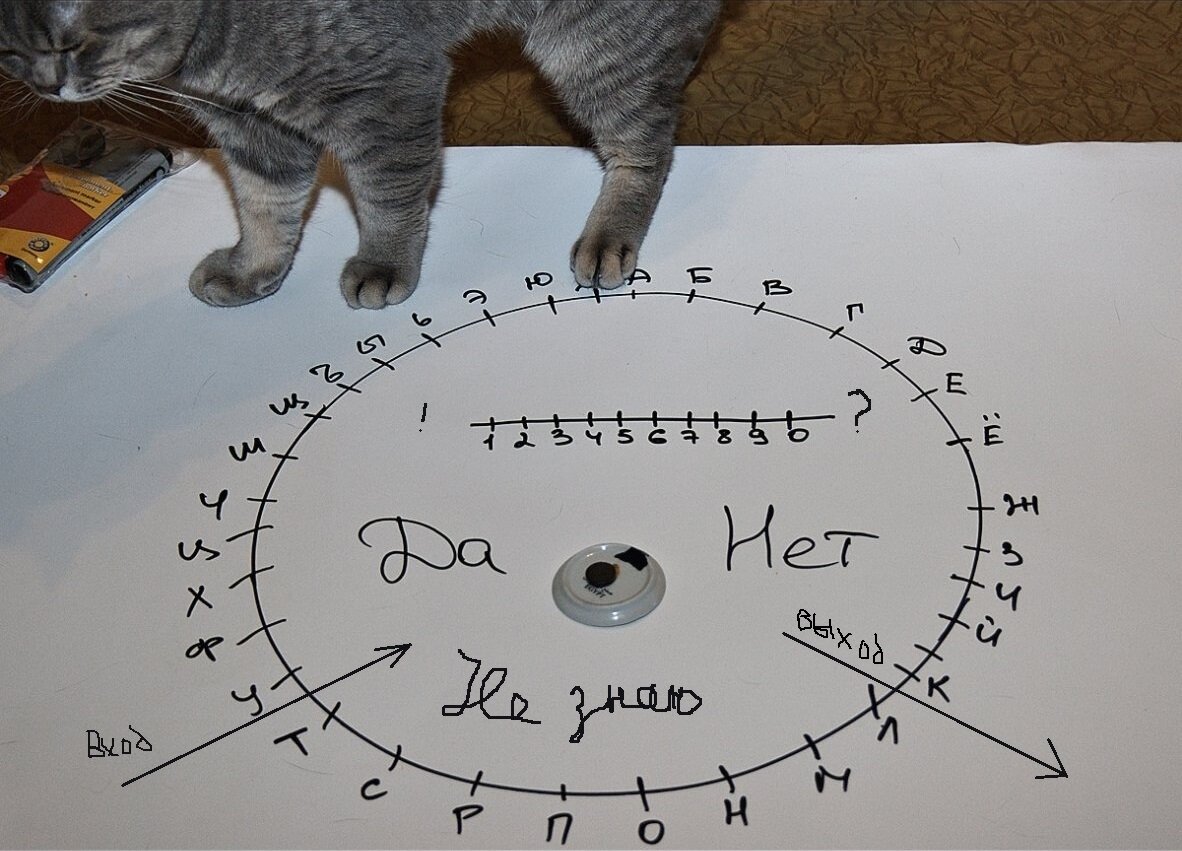 А Б В Г Д Е Ё Ж З И Й К Л М Н О П Р С Т У Ф Х Ц Ч Ш Щ Ъ Ы Ь Э Ю
! ?
1 2 3 4 5 6 7 8 9 0
Да Нет
Не знаю
Вход
Выход